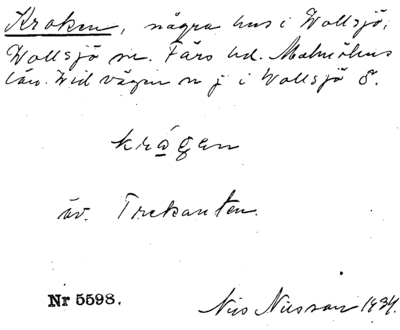 Kroken, några hus i Wollsjö,
Wollsjö sn. Färs hd. Malmöhus
län. Wid vägen n j i Wollsjö S.
krǻgen
äv. Trekanten.
Nr 5598.
Nils Nilsson 1934.